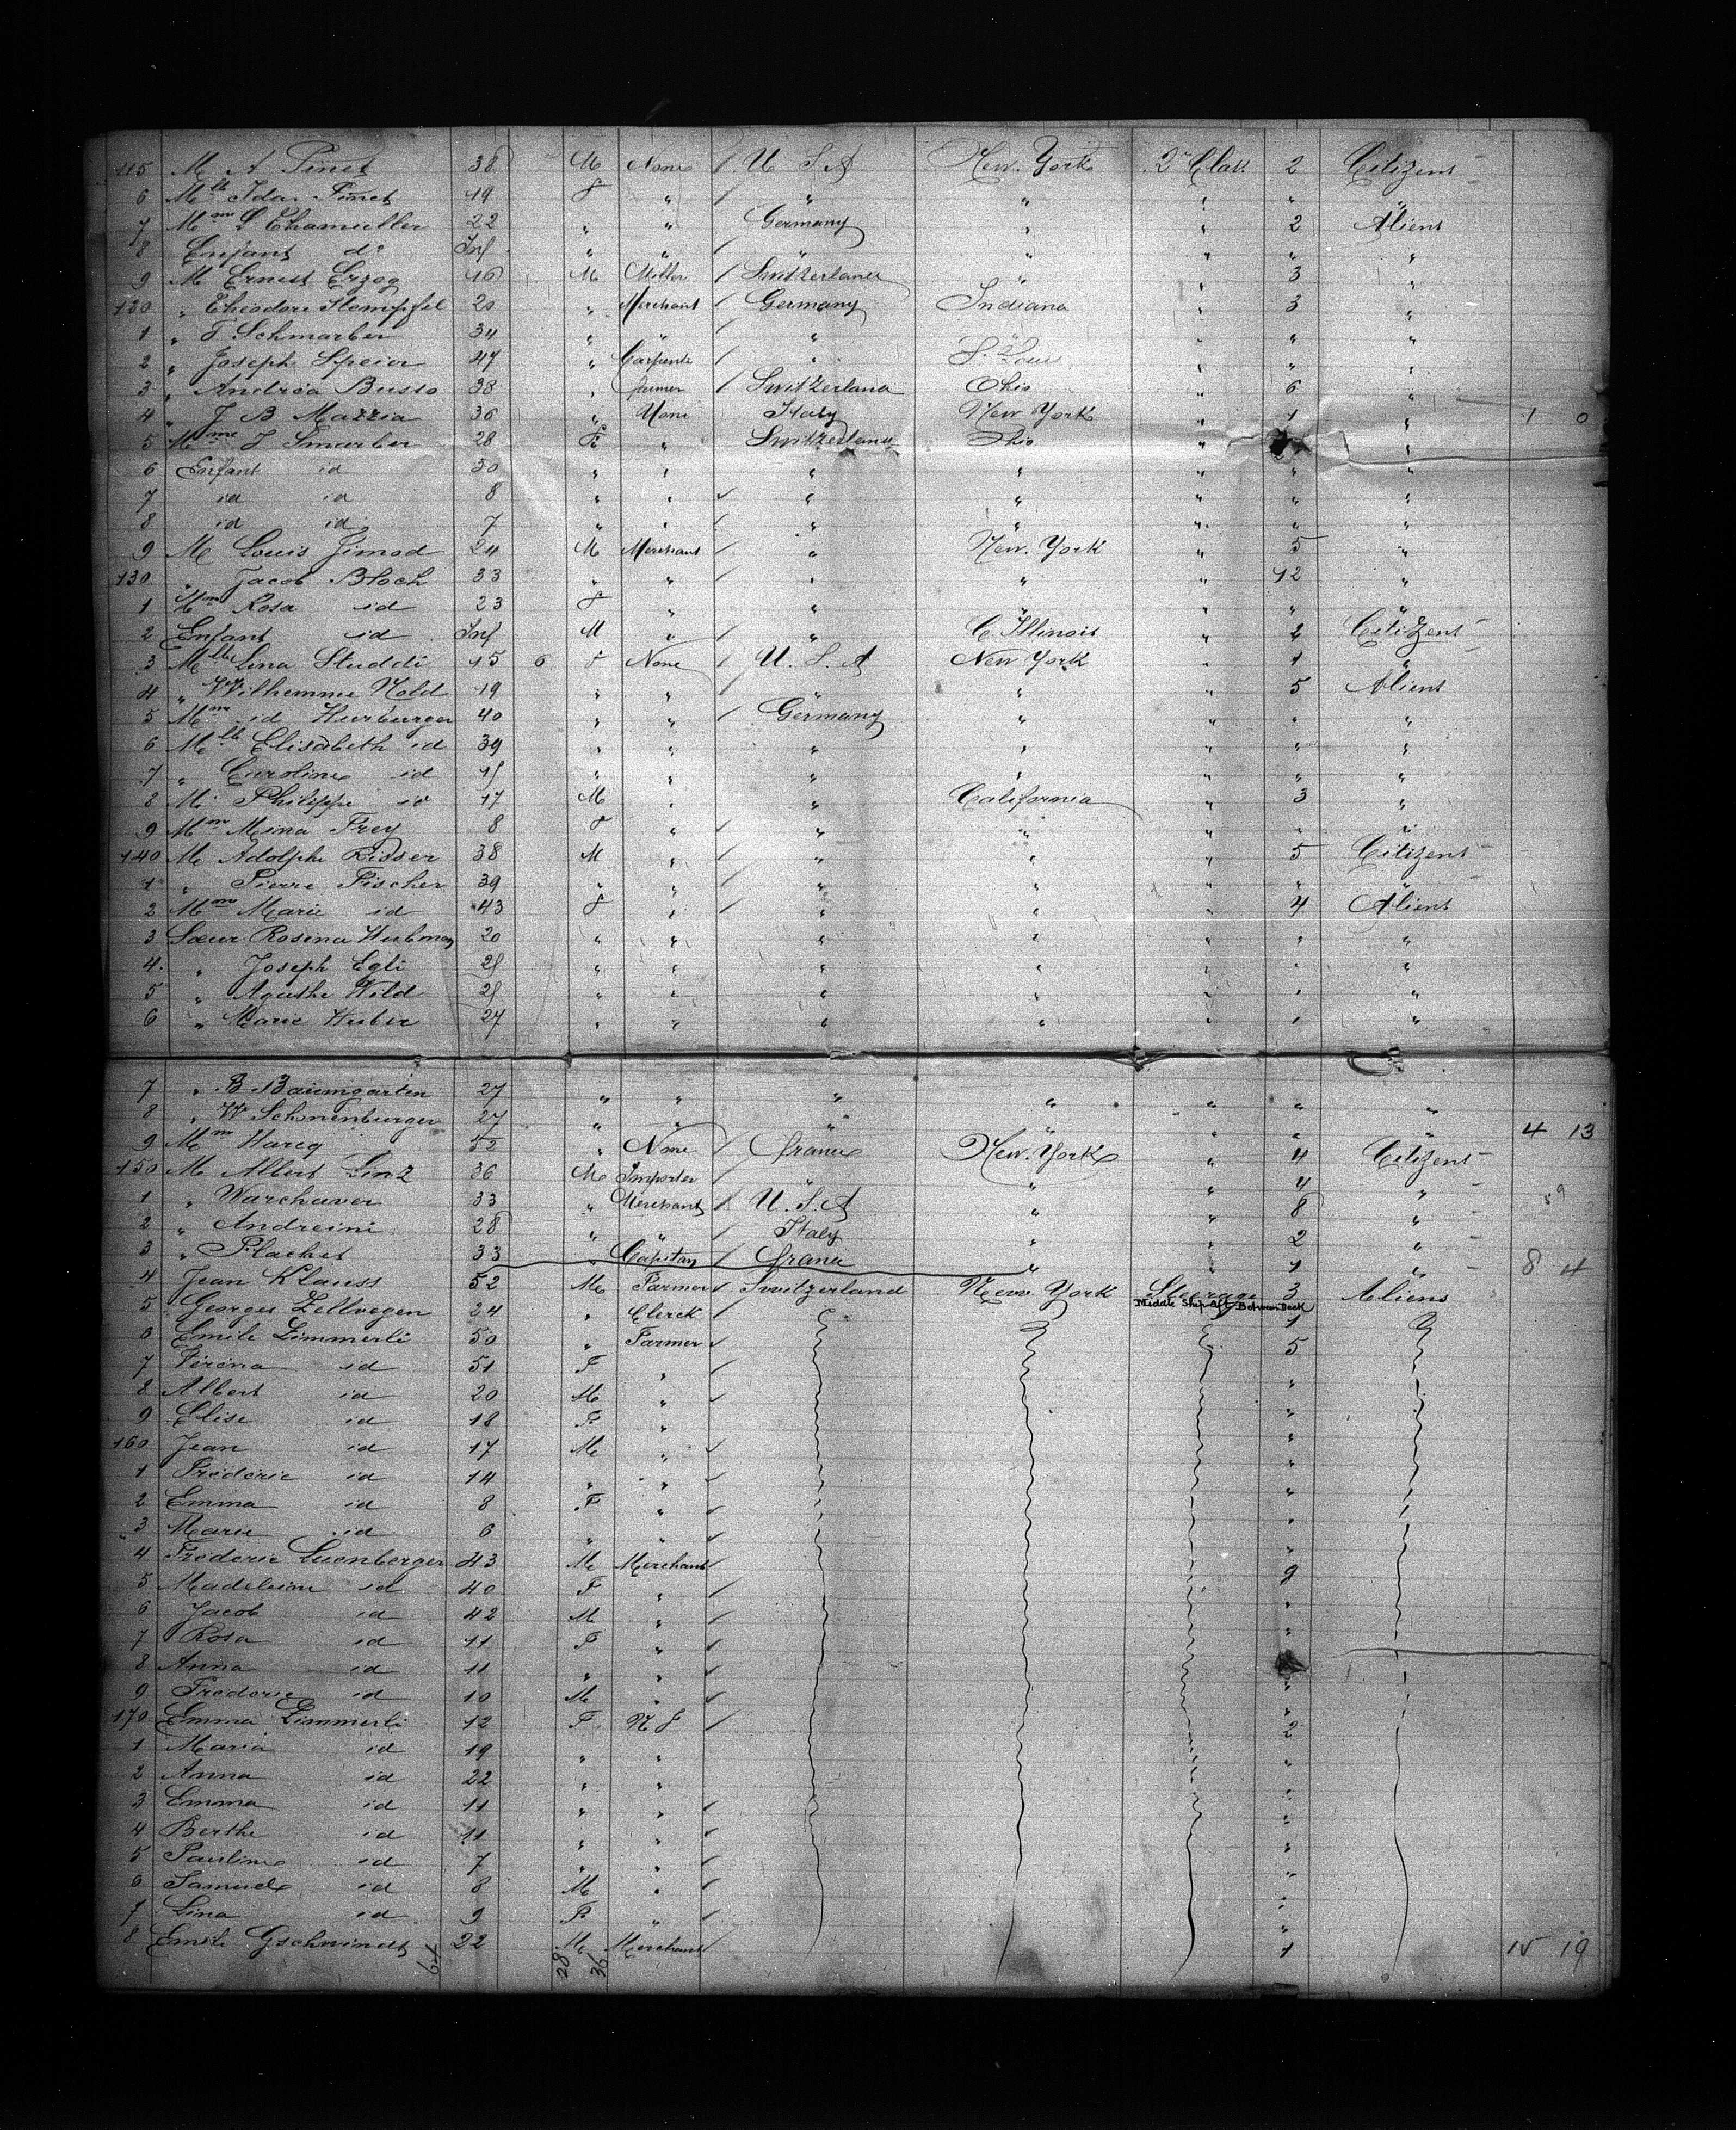 115 M A Pinet 38 M None / U S A New. York 2e Class 2 Citizens
6 Mlle Ida Pinet 19 f " / " " " " "
7 Mme L Chamuller 22 " " Germany " " 2 Aliens
8 Enfant do Inf " " / " " " " "
9 M Ernest Erzog 16 M Miller / Switzerland " " 3 "
120 " Theodore Stempfel 20 " Merchant / Germany Indiana " 3 "
1 " F Schmarber 34 " " / " " " " "
2 " Joseph Speier 47 " Carpente / " S. Louis " " "
3 " Andréa Busso 38 " farmer / Switzerland Ohio " 6 "
4 " J B Mazzia 36 " None Italy New York " 1 " 1 0
5 Mme J Smarber 28 F " Switzerland Ohio " "
6 Enfant id 30 " " " " " " "
7 id id 8 " " " " " " "
8 id id 7 " " / " " " " "
9 M Louis Jimod 24 M Merchant / " New. York " 5 "
130 " Jacob Bloch 33 " " / " " " 12 "
1 Mme Rosa id 23 f " " " " " "
2 Enfant id Inf M " / " C. Illinois " 2 Citizens
3 Mlle Lina Studdi 15 6 f None / U. S. A New York " 1 "
4 " Wilhemine Nold 19 " " / " " " 5 Aliens
5 Mme id Hurburger 40 " " / Germany " " " "
6 Mlle Elisabeth id 39 " " " " " " "
7 " Caroline id " " " " " " "
8 M Philippe id 17 M " " California " 3 "
9 Mme Mina Frey 8 f " / " " " " "
140 M Adolphe Risser 38 M " / " " " 5 Citizens
1 " Pierre Fischer 39 " " / " " " " "
2 Mme Marie id 43 f " / " " " 4 Aliens
3 Sœur Rosina Hubman 20 " " " " " " "
4 " Joseph Egli " " " " " " "
5 " Agathe Wild " " " " " " "
6 " Marie Huber 27 " " " " " " "
7 " B Baumgarten 27 " " " " " " "
8 " W Schonenburger 27 " " " " " " " 4 13
9 Mme Hareg 52 " None / france New. York " 4 Citizens
150 M Albert Linz 36 M Importer " " " 4 "
1 " Warchaver 33 " Merchant / U. S. A " " 8 "
2 " Andreini 28 " " / Italy " " 2 "
3 " Plachet 33 " Capitan / france " " 1 " 8 4
4 Jean Klauss 52 M Farmer Switzerland New York Steerage 3 Aliens
Middle Ship Aft Between Deck
5 Georges Zellvegen 24 " Clerck / 1
6 Emile Zimmerli 50 " Farmer 5
7 Verena id 51 F " / "
8 Albert id 20 M " "
9 Elise id 18 F " "
160 Jean id 17 M " "
1 Frederic id 14 " " "
2 Emma id 8 F " "
3 Marie id 6 " " "
4 Frederic Luenberger 43 M Merchant 9
5 Madeleine id 40 F " / "
6 Jacob id 42 M " / "
7 Rosa id 11 F "
8 Anna id 11 " " "
9 Frederic id 10 M " "
170 Emma Zimmerli 12 F. / 2
1 Maria id 19 " " "
2 Anna id 22 " " "
3 Emma id 11 " " "
4 Berthe id 11 " " "
5 Pauline id 7 " " / "
6 Samuel id 8 M " / "
7 Lina id 9 F " / "
8 Emile Gschwindt 22 M Merchant 1 15 19
64 28 36